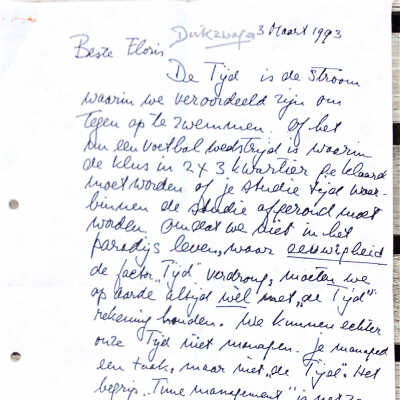 Duikzwager 3 Maart 1993
Beste Floris
De Tijd is de stroom
waarin we veroordeeld zijn om
tegen op te zwemmen. Of het
nu een voetbal wedstrijd is waarin
de klus in 2 x 3 kwartier geklaard
moet worden of je studie tijd waar-
binnen de studie afgerond moet
worden. Omdat we niet in het
paradijs leven, waar eeuwigheid
de factor "Tijd" verdrong, moeten we
op aarde altijd wèl met "de Tijd"
rekening houden. We kunnen echter
onze Tijd niet managen. Je managed
een taak, maar niet "de Tijd". Het
begrip "Time management" is net zo